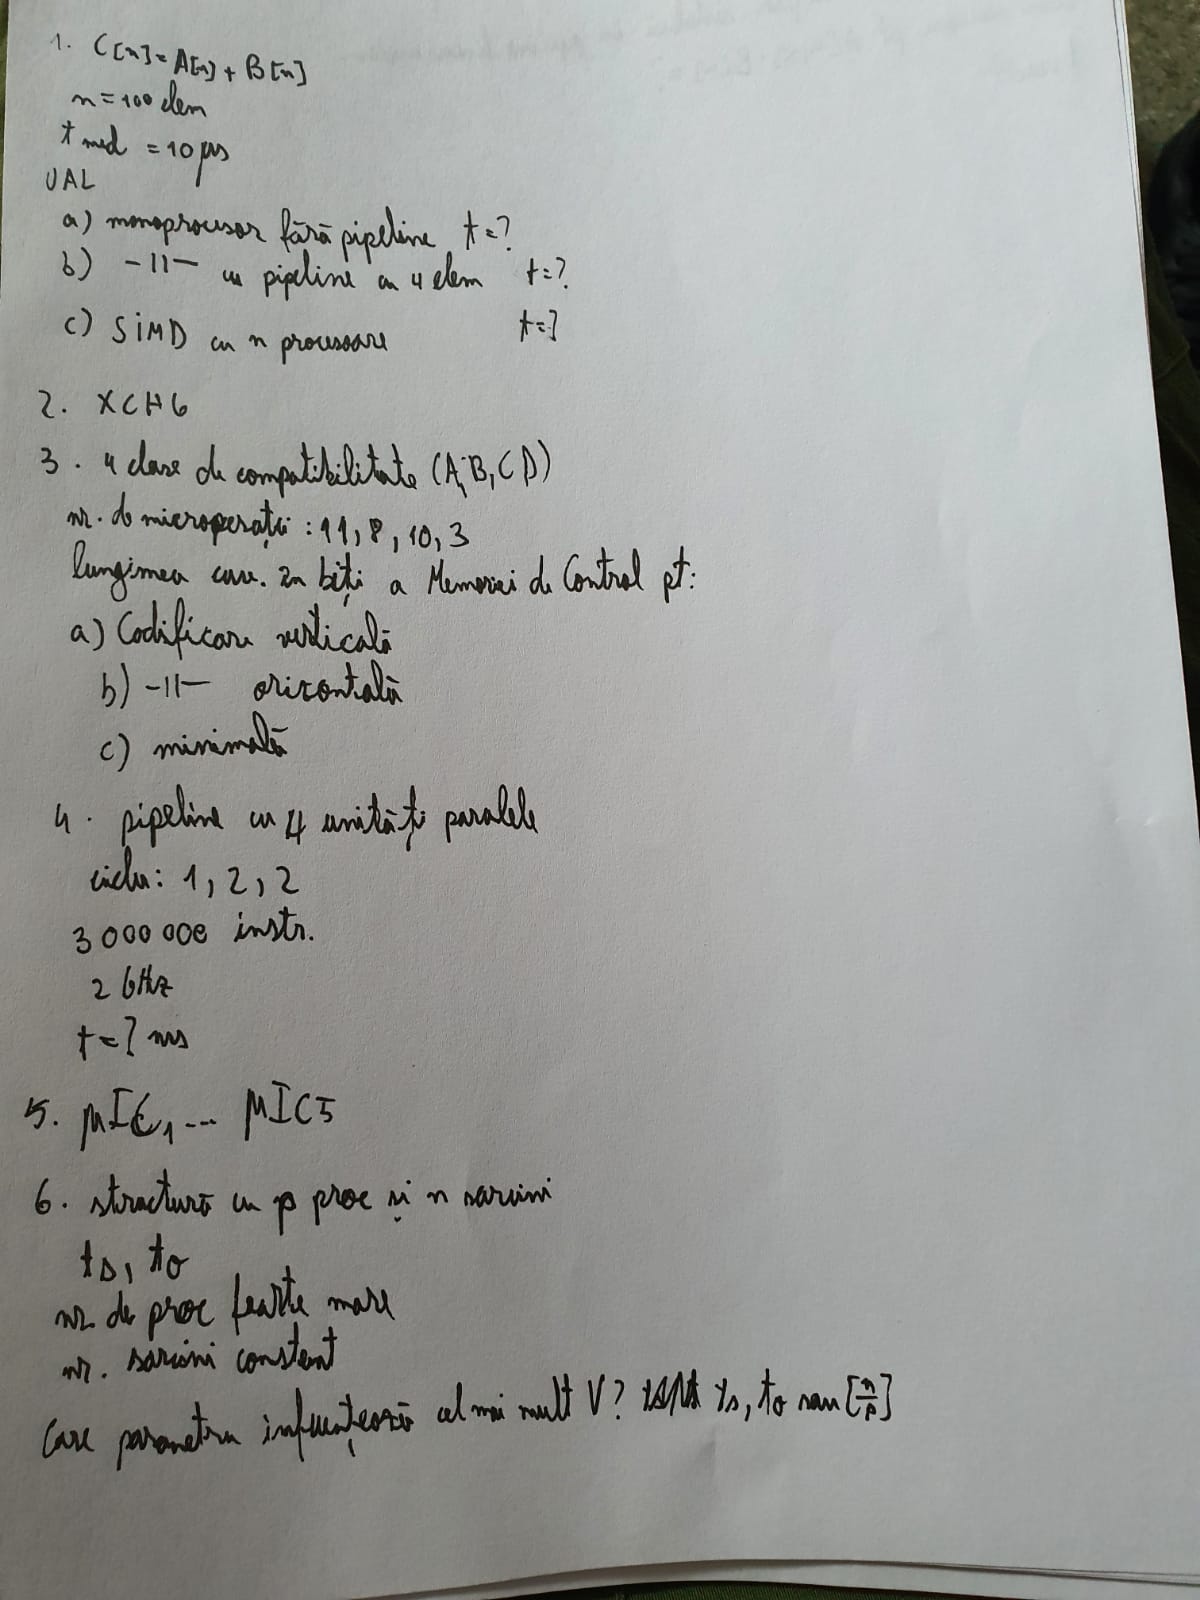 1. C[n]=A[n]+B[n]
n=100 elem
t med = 10 μs
UAL
a) monoprocesor fără pipeline t=?
b) -11- cu pipeline cu 4 elem t=?
c) SIMD cu n procesoare t=?
2. XCHG
3. 4 clase de compatibilitate (A,B,C D)
nr. de microperații: 11, 8, 10, 3
lungimea cuv. în biți a Memoriei de Control pt:
a) Codificare verticală
b) -11- orizontală
c) minimală
4. pipeline cu 4 unități paralele
ciclu: 1, 2, 2
3 000 000 instr.
2 GHz
t=? ms
5. μIC1 ... MIC5
6. structură cu p proc și n sarcini
ts, to
nr. de proc foarte mare
nr. sarcini constant
Care parametru influențează cel mai mult V? ts, to sau [n/p]